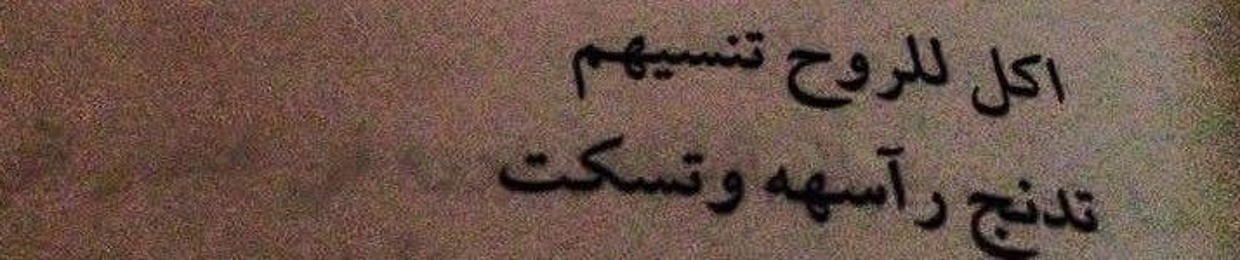 اكل للروح تنسيهم
تدنج رآسهه وتسكت